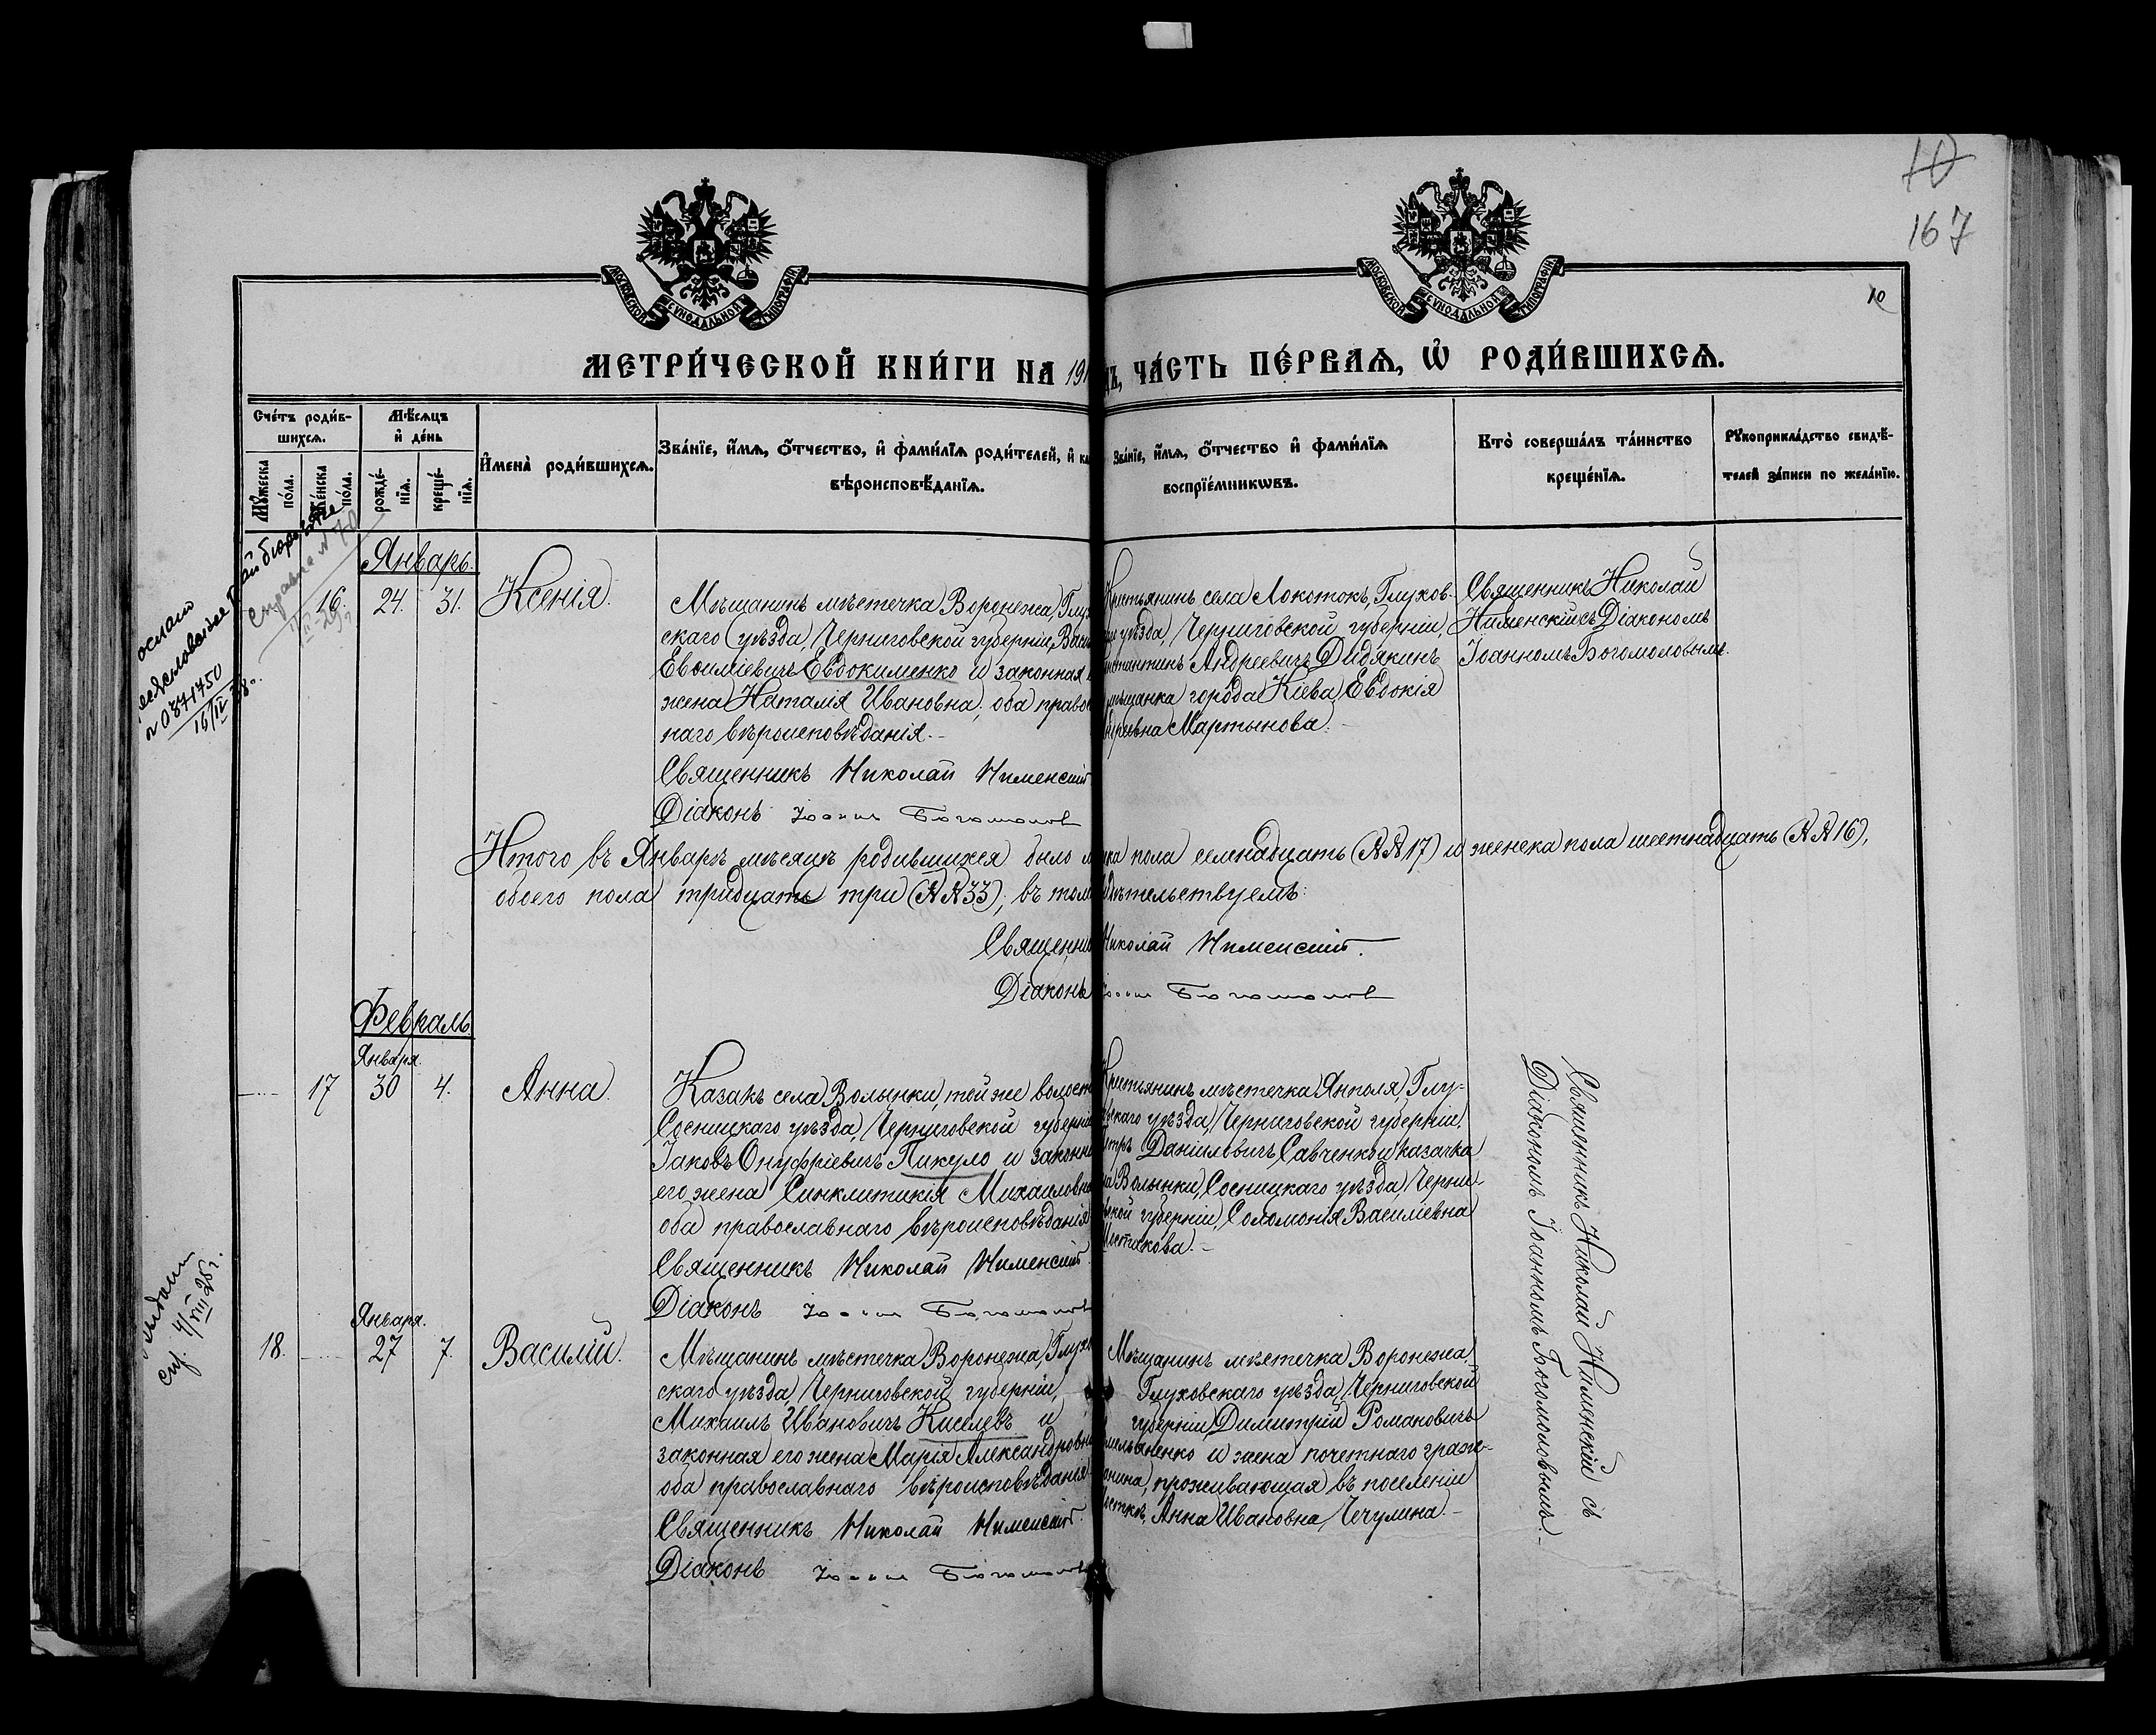 10
167
10
МОСКОВСКОЙ СѴНОДАЛЬНОЙ ТИПОГРАФІИ
МОСКОВСКОЙ СѴНОДАЛЬНОЙ ТИПОГРАФІИ
МЕТРИ́ЧЕСКОЙ КНИ́ГИ НА 191
Ъ, ЧА́СТЬ ПЕ́РВАѦ, Ѡ҆ РОДИ́ВШИХСѦ.
Сче́тъ роди́в-
шихсѧ.
Мꙋ́жеска
по́ла.
Же́нска
по́ла.
Мѣ́сѧцъ
и҆ де́нь
рожде́-
нїѧ.
креще́-
нїѧ.
И҆мена̀ роди́вшихсѧ.
Зва́нїе, и҆́мѧ, ѻ҆́тчество, и҆ фами́лїѧ роди́телей, и҆ ка
вѣроисповѣ́данїѧ.
Зва́нїе, и҆́мѧ, ѻ҆́тчество и҆ фами́лїѧ
воспрїе́мникѡвъ.
Кто̀ соверша́лъ та́инство
креще́нїѧ.
Рꙋкоприкла́дство свидѣ́-
телей за́писи по жела́нїю.
Январь.
16. 24. 31. Ксенія.
Мѣщанинъ мѣстечка Воронежа, Глух
скаго уѣзда, Черниговской губерніи, Васи
Евѳиміевичъ Евдокименко и законная
жена Наталія Ивановна, оба право
наго вѣроисповѣданія.-
Священникъ Николай Нименскій
Діаконъ Іоаннъ Богомолов
Крестьянинъ села Локотокъ, Глухов-
уѣзда, Черниговской губерніи,
стантинъ Андреевичъ Дидякинъ
мѣщанка города Кіева Евдокія
дреевна Мартынова.-
Священникъ Николай
Нименскій съ Діакономъ
Іоанномъ Богомоловымъ.
Итого въ Январѣ мѣсяцѣ родившихся было м
ска пола семнадцать (№№17) и женска пола шестнадцать (№№16),
обоего пола тридцать три (№№33), въ том
идѣтельствуемъ:
Священни
Николай Нименскій.
Діаконъ
Іоаннъ Богомолов
Февраль.
Января.
17 30 4. Анна.
Казакъ села Волынки, той же волости
Сосницкаго уѣзда, Черниговской губерніи
Іаковъ Онуфріевичъ Пикуло и законна
его жена Синклитикія Михаиловна
оба православнаго вѣроисповѣданія
Священникъ Николай Нименскій
Діаконъ Іоаннъ Богомолов
Крестьянинъ мѣстечка Янполя, Глу-
скаго уѣзда, Черниговской губерніи,
етръ Даніиловичъ Савченко и казачка
ла Волынки, Сосницкаго уѣзда, Черни-
ской губерніи, Соломонія Василіевна
Шестакова.-
Священникъ Николай Нименскій съ
Діакономъ Іоанномъ Богомоловымъ.-
Января.
18. 27 7. Василій.
Мѣщанинъ мѣстечка Воронежа, Глухо
скаго уѣзда, Черниговской губерніи,
Михаилъ Ивановичъ Киселевъ и
законная его жена Марія Александровна
оба православнаго вѣроисповѣданія
Священникъ Николай Нименскій.
Діаконъ Іоаннъ Богомолов
Мѣщанинъ мѣстечка Воронежа,
Глуховскаго уѣзда, Черниговской
губерніи, Димитрій Романовичъ
мельяненко и жена почетнаго граж-
онина, проживающая въ поселеніи
остков, Анна Ивановна Чечулина.-